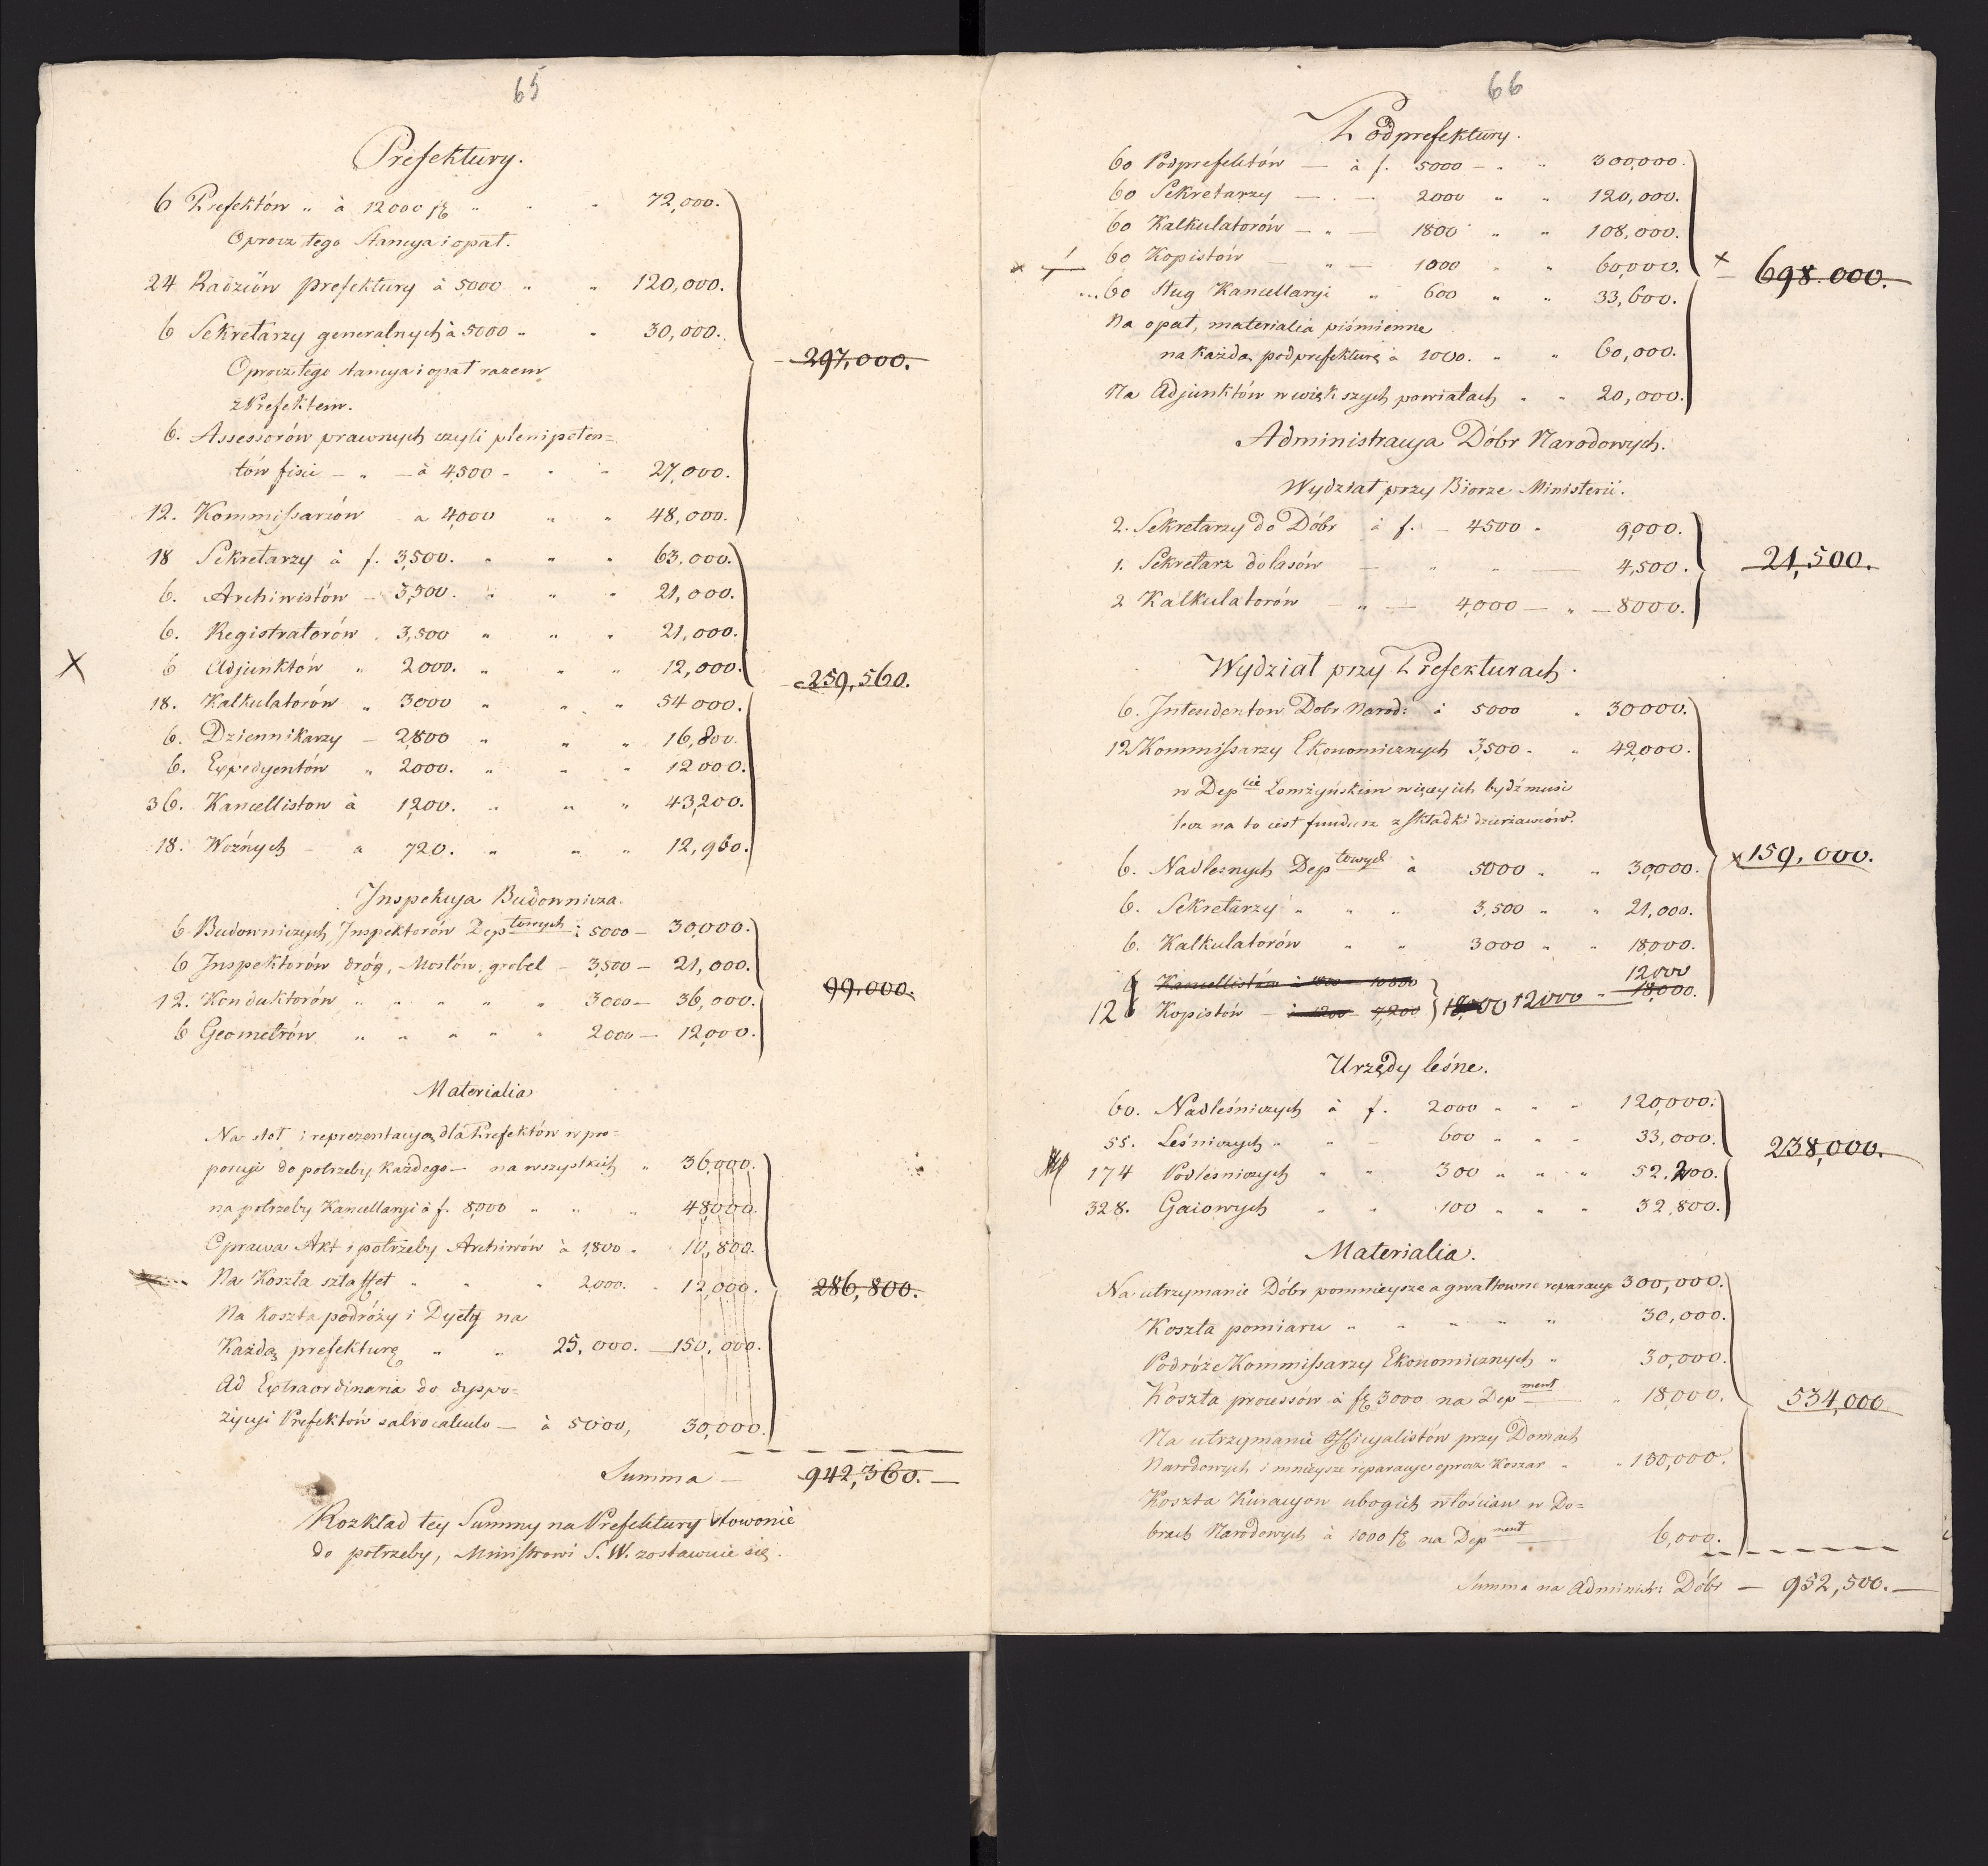 65
Prefektury.
6 Prefektów " à 12000 " - " 72,000.
Oprocz tego Stancya i opał.
24 Radzców prefektury à 5000 " " 120,000.
6 Sekretarzy generalnych à 5000 " " 30,000.
Oprocz tego stancya i opał razem
z Prefektem.
297,000.
6. Assessorów prawnych czyli plenipoten=
tów fisci — " — à 4500 - " - 27,000.
12. Kommissarzów a 4,000 " " 48,000.
18 Sekretarzy à f. 3,500. " " " 63,000.
6. Archiwistów - 3,500. " " " 21,000.
6. Registratorów . 3,500 " " " 21,000.
X 6 Adjunktów " 2000. " " " 12,000.
259,560.
18. Kalkulatorów " 3000 " " " 54000.
6. Dziennikarzy - 2,800 " " " 16,800.
6. Expedyentów " 2000. " " " 12000.
36. Kancellistow à 1,200. " " " 43,200.
18. Woźnych - a 720. " " " 12,960.
Inspekcya Budownicza.
6 Budowniczych Inspektorów Deptowych à 5000 — 30,000.
6 Inspektorów dróg, Mostów, grobel - 3,500 — 21,000.
99,000.
12. Konduktorów " " " " " 3000 — 36,000.
6 Geometrów " " " " " 2000 — 12,000.
Materialia
Na stoł i reprezentacyą dla Prefektów w pro=
porcyi do potrzeby każdego — na wszystkich " 36,000.
na potrzeby Kancellaryi à f. 8,000 " " " 48,000.
Oprawa Akt i potrzeby Archiwów à 1,800 " 10,800.
Na Koszta sztaffet " " " 2,000. " 12,000.
286,800.
Na Koszta podróży i Dyety na
Każdą prefekturę " " 25,000. — 150,000.
Ad Extraordinaria do dyspo=
zycyi Prefektów salvo calculo — à 5000, 30,000.
Summa — 942,360. —
Rozkład tey Summy na Prefektury stowonie
do potrzeby, Ministrowi S. W. zostawuie się.
66
Podprefektury.
60 Podprefektów — à f. 5000 - " " 300,000.
60 Sekretarzy — . — 2000 " " 120,000.
60 Kalkulatorów — " — 1800 " " 108,000.
60 Kopistów — " — 1000 " " 60,000.
x 698.000.
60 Sług Kancellaryi " 600 " " 33,600.
Na opał, materialia piśmienne
na każdą podprefekturę à 1000. " " 60,000.
Na Adjunktów w większych powiatach " " 20,000.
Administracya Dóbr Narodowych.
Wydział przy Biorze Ministerii.
2. Sekretarzy do Dóbr à f. — 4500 " 9,000.
1. Sekretarz do lasów — " " — 4,500.
21,500.
2 Kalkulatorów — " — 4,000 — " — 8000.
Wydział przy Prefekturach.
6. Intendentow Dobr Narod: à 5000 " 30000.
12 Kommissarzy Ekonomicznych 3,500 " " 42,000.
w Depcie Łomżyńskim więcey ich bydź musi
lecz na to iest fundusz z składki dzierżawców.
x 159,000.
6. Nadleśnych Deptowych à 5000 " " 30,000.
6. Sekretarzy " " " 3,500 " " 21,000.
6. Kalkulatorów " " 3000 " " 18,000.
12000
6 Kancellistów à 1800 — 10800
12 6 Kopistów — à 1200 — 7,200 } 12000 " 18,000.
Urzędy leśne.
60. Nadleśniczych à f. 2000 " " " 120,000.
55. Leśniczych " " - 600 " " " 33,000.
238,000.
174 Podleśniczych " " 300 " " " 52.200.
328. Gaiowych " " 100 " " " 32,800.
Materialia.
Na utrzymanie Dóbr pommieysze a gwałtowne reparacye 300,000.
Koszta pomiaru " " " " " 30,000.
Podróże Kommissarzy Ekonomicznych " 30,000.
Koszta processów à 3000 na Depment — " 18,000.
534,000.
Na utrzymanie Officyalistów przy Domach
Narodowych i mnieysze reparacye oprocz Koszar " " 150,000.
Koszta Kuracyow ubogich włościan w Do=
brach Narodowych à 1000 na Depment — 6,000.
Summa na Administr: Dóbr — 952,500. —